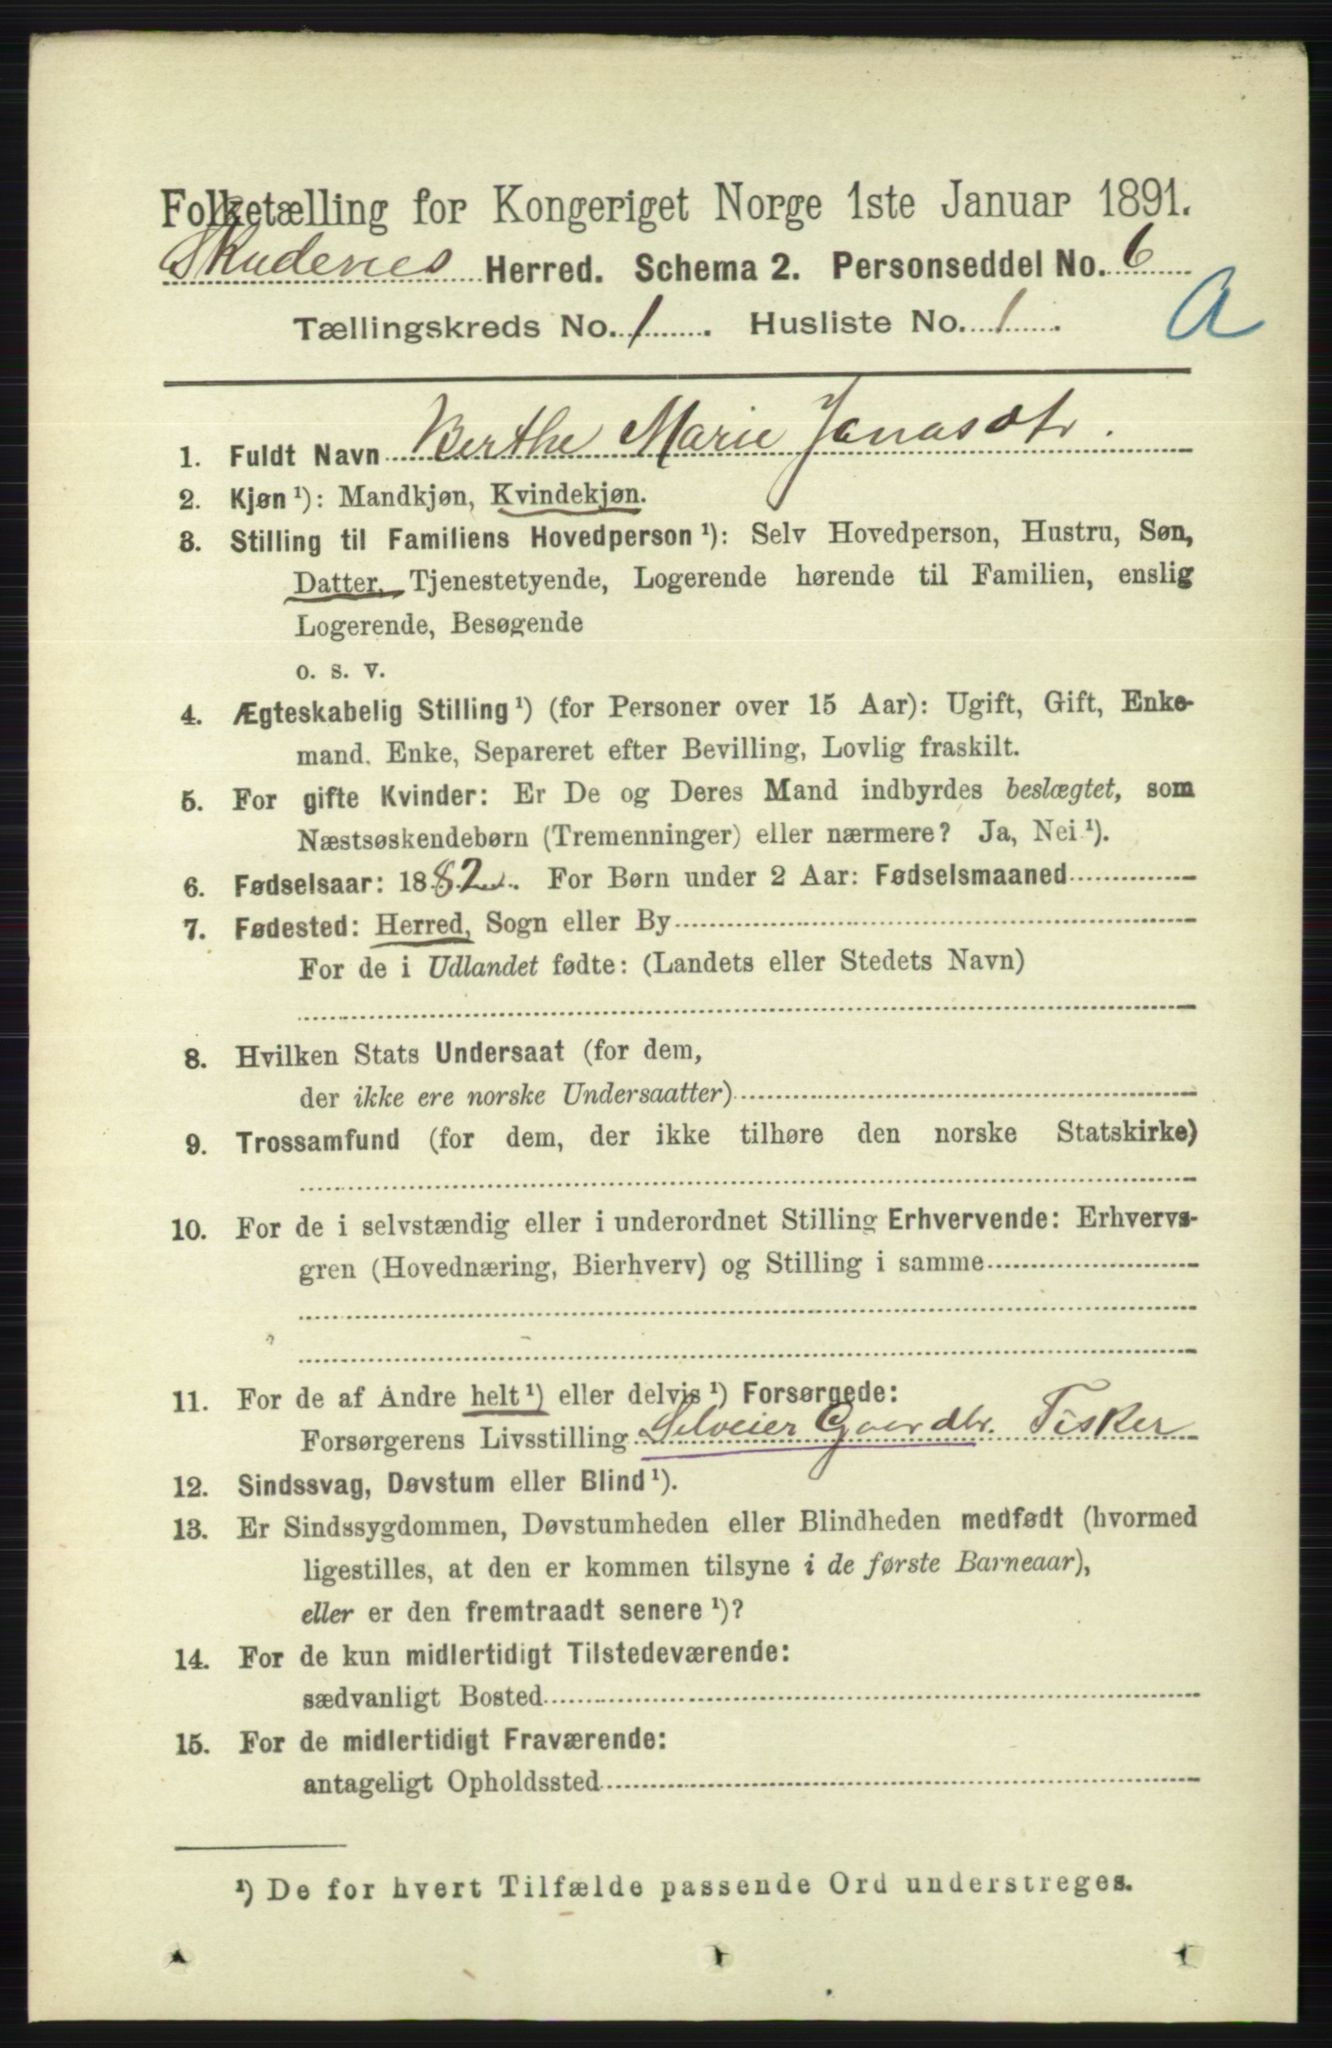 Folketælling for Kongeriget Norge 1ste Januar 1891.
Skudenes Herred. Schema 2. Personseddel No. 6
Tællingskreds No. 1. Husliste No. 1. A
1. Fuldt Navn Berthe Marie Jonasdtr.
2. Kjøn ¹): Mandkjøn, Kvindekjøn.
3. Stilling til Familiens Hovedperson ¹): Selv Hovedperson, Hustru, Søn,
Datter, Tjenestetyende, Logerende hørende til Familien, enslig
Logerende, Besøgende
o. s. v.
4. Ægteskabelig Stilling ¹) (for Personer over 15 Aar): Ugift, Gift, Enke-
mand. Enke, Separeret efter Bevilling, Lovlig fraskilt.
5. For gifte Kvinder: Er De og Deres Mand indbyrdes beslægtet, som
Næstsøskendebørn (Tremenninger) eller nærmere? Ja, Nei ¹).
6. Fødselsaar: 1882. For Børn under 2 Aar: Fødselsmaaned
7. Fødested: Herred, Sogn eller By
For de i Udlandet fødte: (Landets eller Stedets Navn)
8. Hvilken Stats Undersaat (for dem,
der ikke ere norske Undersaatter)
9. Trossamfund (for dem, der ikke tilhøre den norske Statskirke)
10. For de i selvstændig eller i underordnet Stilling Erhvervende: Erhvervs-
gren (Hovednæring, Bierhverv) og Stilling i samme
11. For de af Andre helt ¹) eller delvis ¹) Forsørgede:
Forsørgerens Livsstilling Selveier Gaardbr. Fisker
12. Sindssvag, Døvstum eller Blind ¹).
13. Er Sindssygdommen, Døvstumheden eller Blindheden medfødt (hvormed
ligestilles, at den er kommen tilsyne i de første Barneaar),
eller er den fremtraadt senere ¹)?
14. For de kun midlertidigt Tilstedeværende:
sædvanligt Bosted
15. For de midlertidigt Fraværende:
antageligt Opholdssted
¹) De for hvert Tilfælde passende Ord understreges.